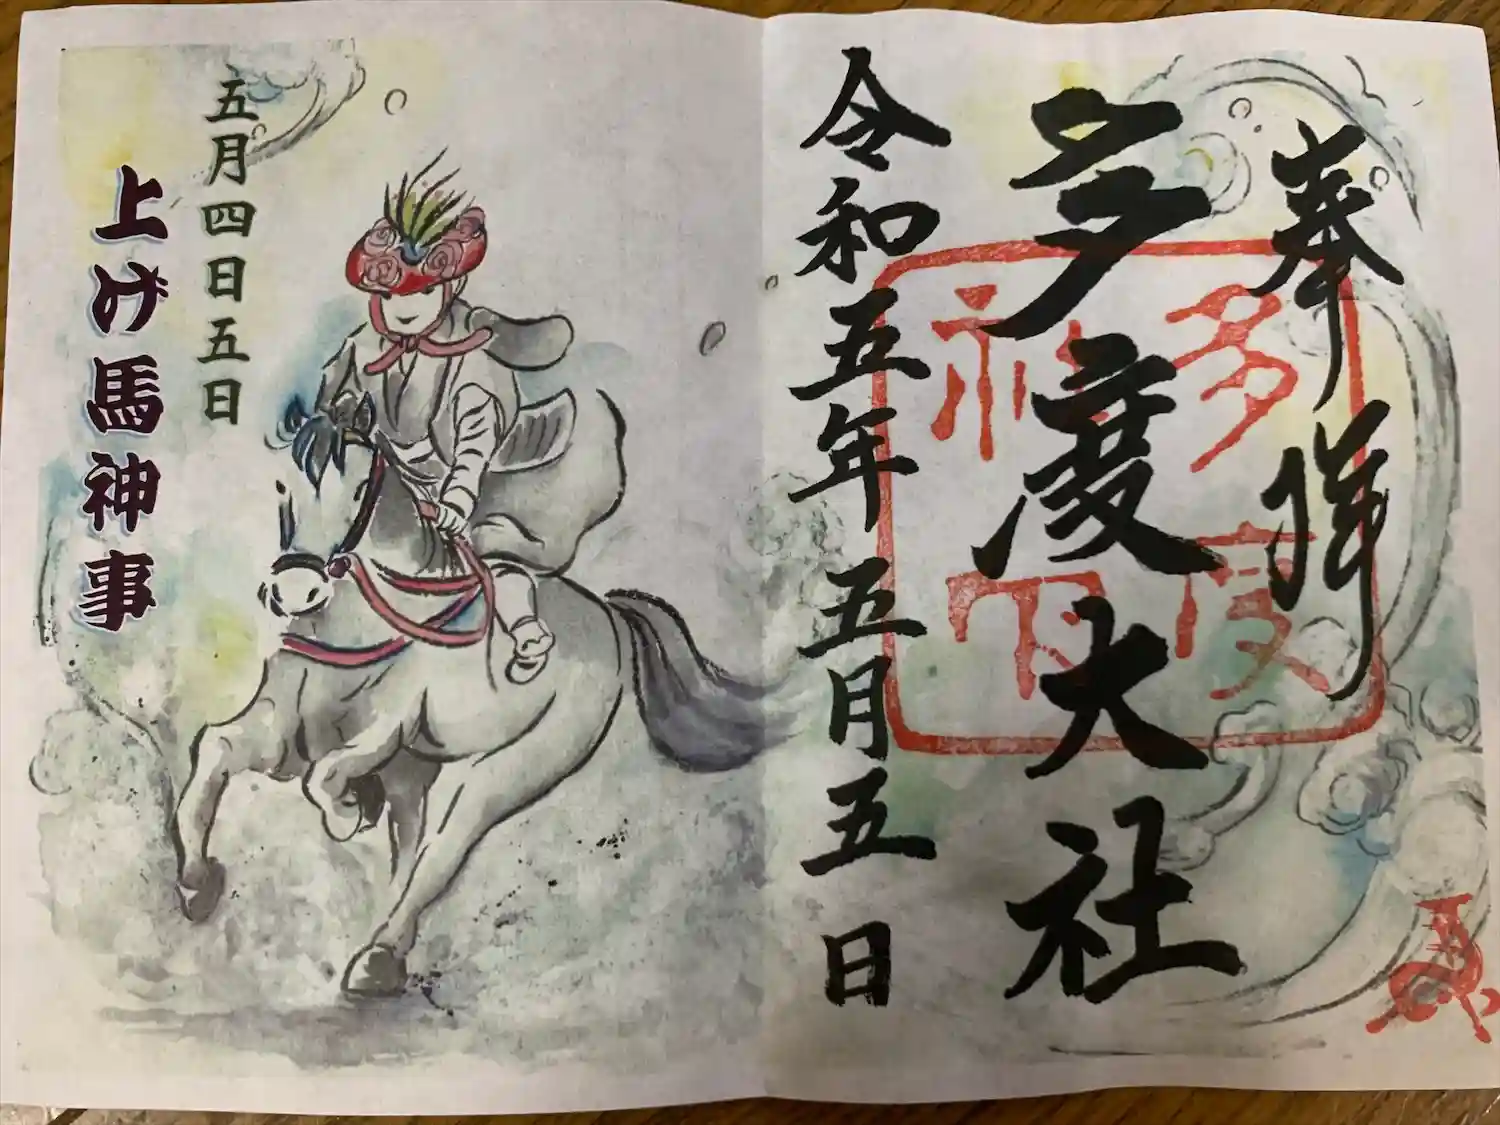 奉拝
多度大社
令和五年五月五日
多度
神社
五月四日五日
上げ馬神事